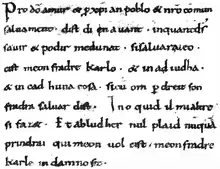 Pro dō amur & p̄ xp̄ian poblo & nr̄o comun
saluament. dist di en auant. inquantdſ
sauir & podir medunat. sisaluaraieo.
cist meon fradre Karlo. & in ad iudha.
& in cad huna cosa. sicu om p dreit son
fradra saluar dist. Ino quid il mialtre
si fazet. Et abludher nul plaid nūqua
prindrai qui meon uol cist. meon fradre
Karle in damno sit.